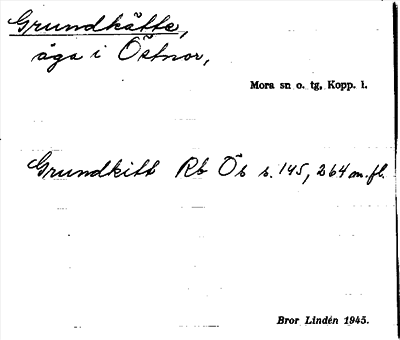 Grundkätte,
äga i Östnor,
Mora sn o. tg, Kopp. l.
Grundkitt Rb Ös s. 145, 264 m.fl.
Bror Lindén 1945.